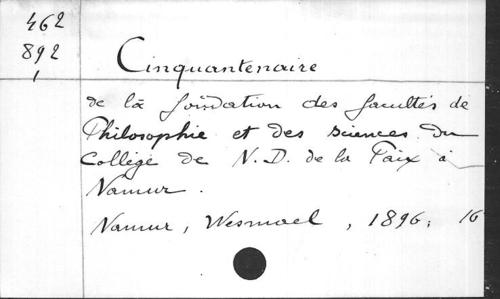 462
892
Cinquantenaire
de la fondation des facultés de
Philosophie et des sciences du
Collège de N. D. de la Paix à
Namur.
Namur, Wesmael, 1896; 16